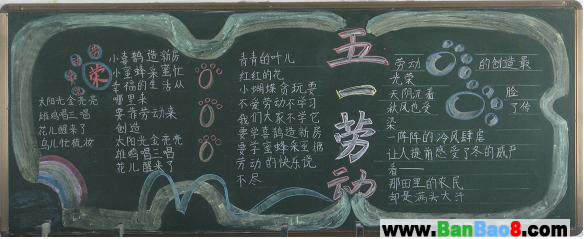 光荣
太阳光金亮亮
雄鸡唱三唱
花儿醒来了
鸟儿忙梳妆
小喜鹊造新房
小蜜蜂采蜜忙
幸福的生活从
哪里来
要靠劳动来
创造
太阳光金亮亮
雄鸡唱三唱
花儿醒来了
青青的叶儿
红红的花
小蝴蝶贪玩耍
不爱劳动不学习
我们大家不学它
要学喜鹊造新房
要学蜜蜂采蜜糖
劳动的快乐说
不尽
五一劳动
劳动 的创造最
光荣
天阴沉着 脸
秋风也受 了传
染
一阵阵的冷风肆虐
让人提前感受了冬的威严
看——
那田里的农民
却是满头大汗
www.BanBao8.com